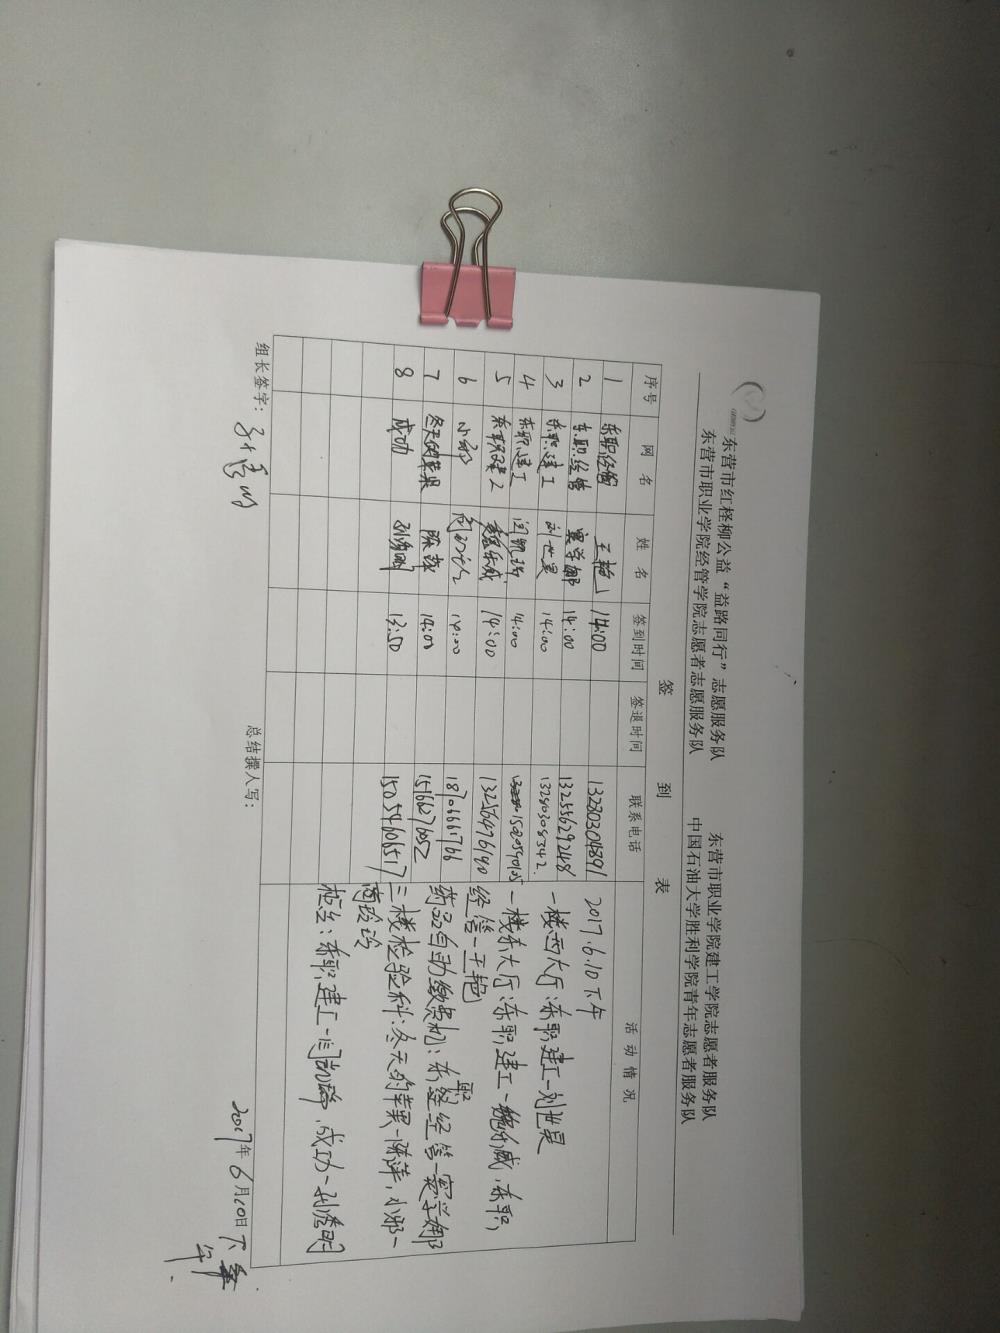 东营市红柽柳公益“益路同行”志愿服务队 东营市职业学院建工学院志愿者服务队
东营市职业学院经管学院志愿者志愿服务队 中国石油大学胜利学院青年志愿者服务队
签 到 表
序号 网 名 姓 名 签到时间 签退时间 联系电话 活 动 情 况
1 东职经管 王艳 14:00 13280304891
2 东职经管 窦学娜 14:00 13255629248
3 东职建工 刘世昊 14:00 13280308342
4 东职建工 闫凯瑞 14:00
5 东职建工 魏乐威 14:00 13256476190
6 小邪 14:00 18706661766
7 冬天的苹果 陈萍 14:00 15166276052
8 成功 孙秀明 13:50 15054606517
2017.6.10下午
一楼西大厅:东职建工-刘世昊
一楼东大厅:东职建工-魏乐威,东职
经管-王艳
药品自动缴费机:东职经管-窦学娜
三楼检验科:冬天的苹果-陈萍,小邪-
商玲玲
柜台:东职建工-闫凯瑞,成功-孙秀明
组长签字: 孙秀明 总结撰人写: 2017年6月10日下午